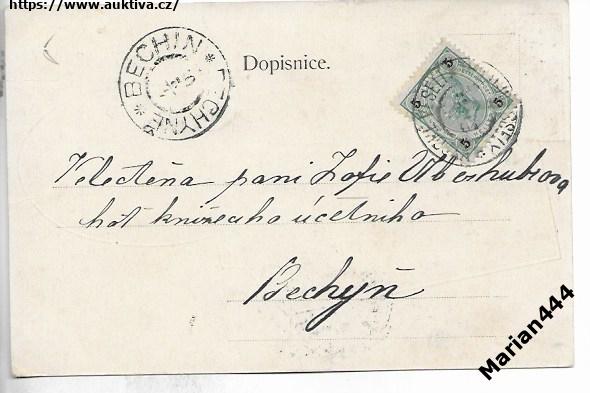 https://www.auktiva.cz/
BECHIN * BECHYNĚ *
Dopisnice.
5 5 5
Velectěna paní Žofie
choť knížecího účetního
Bechyň
Marian444